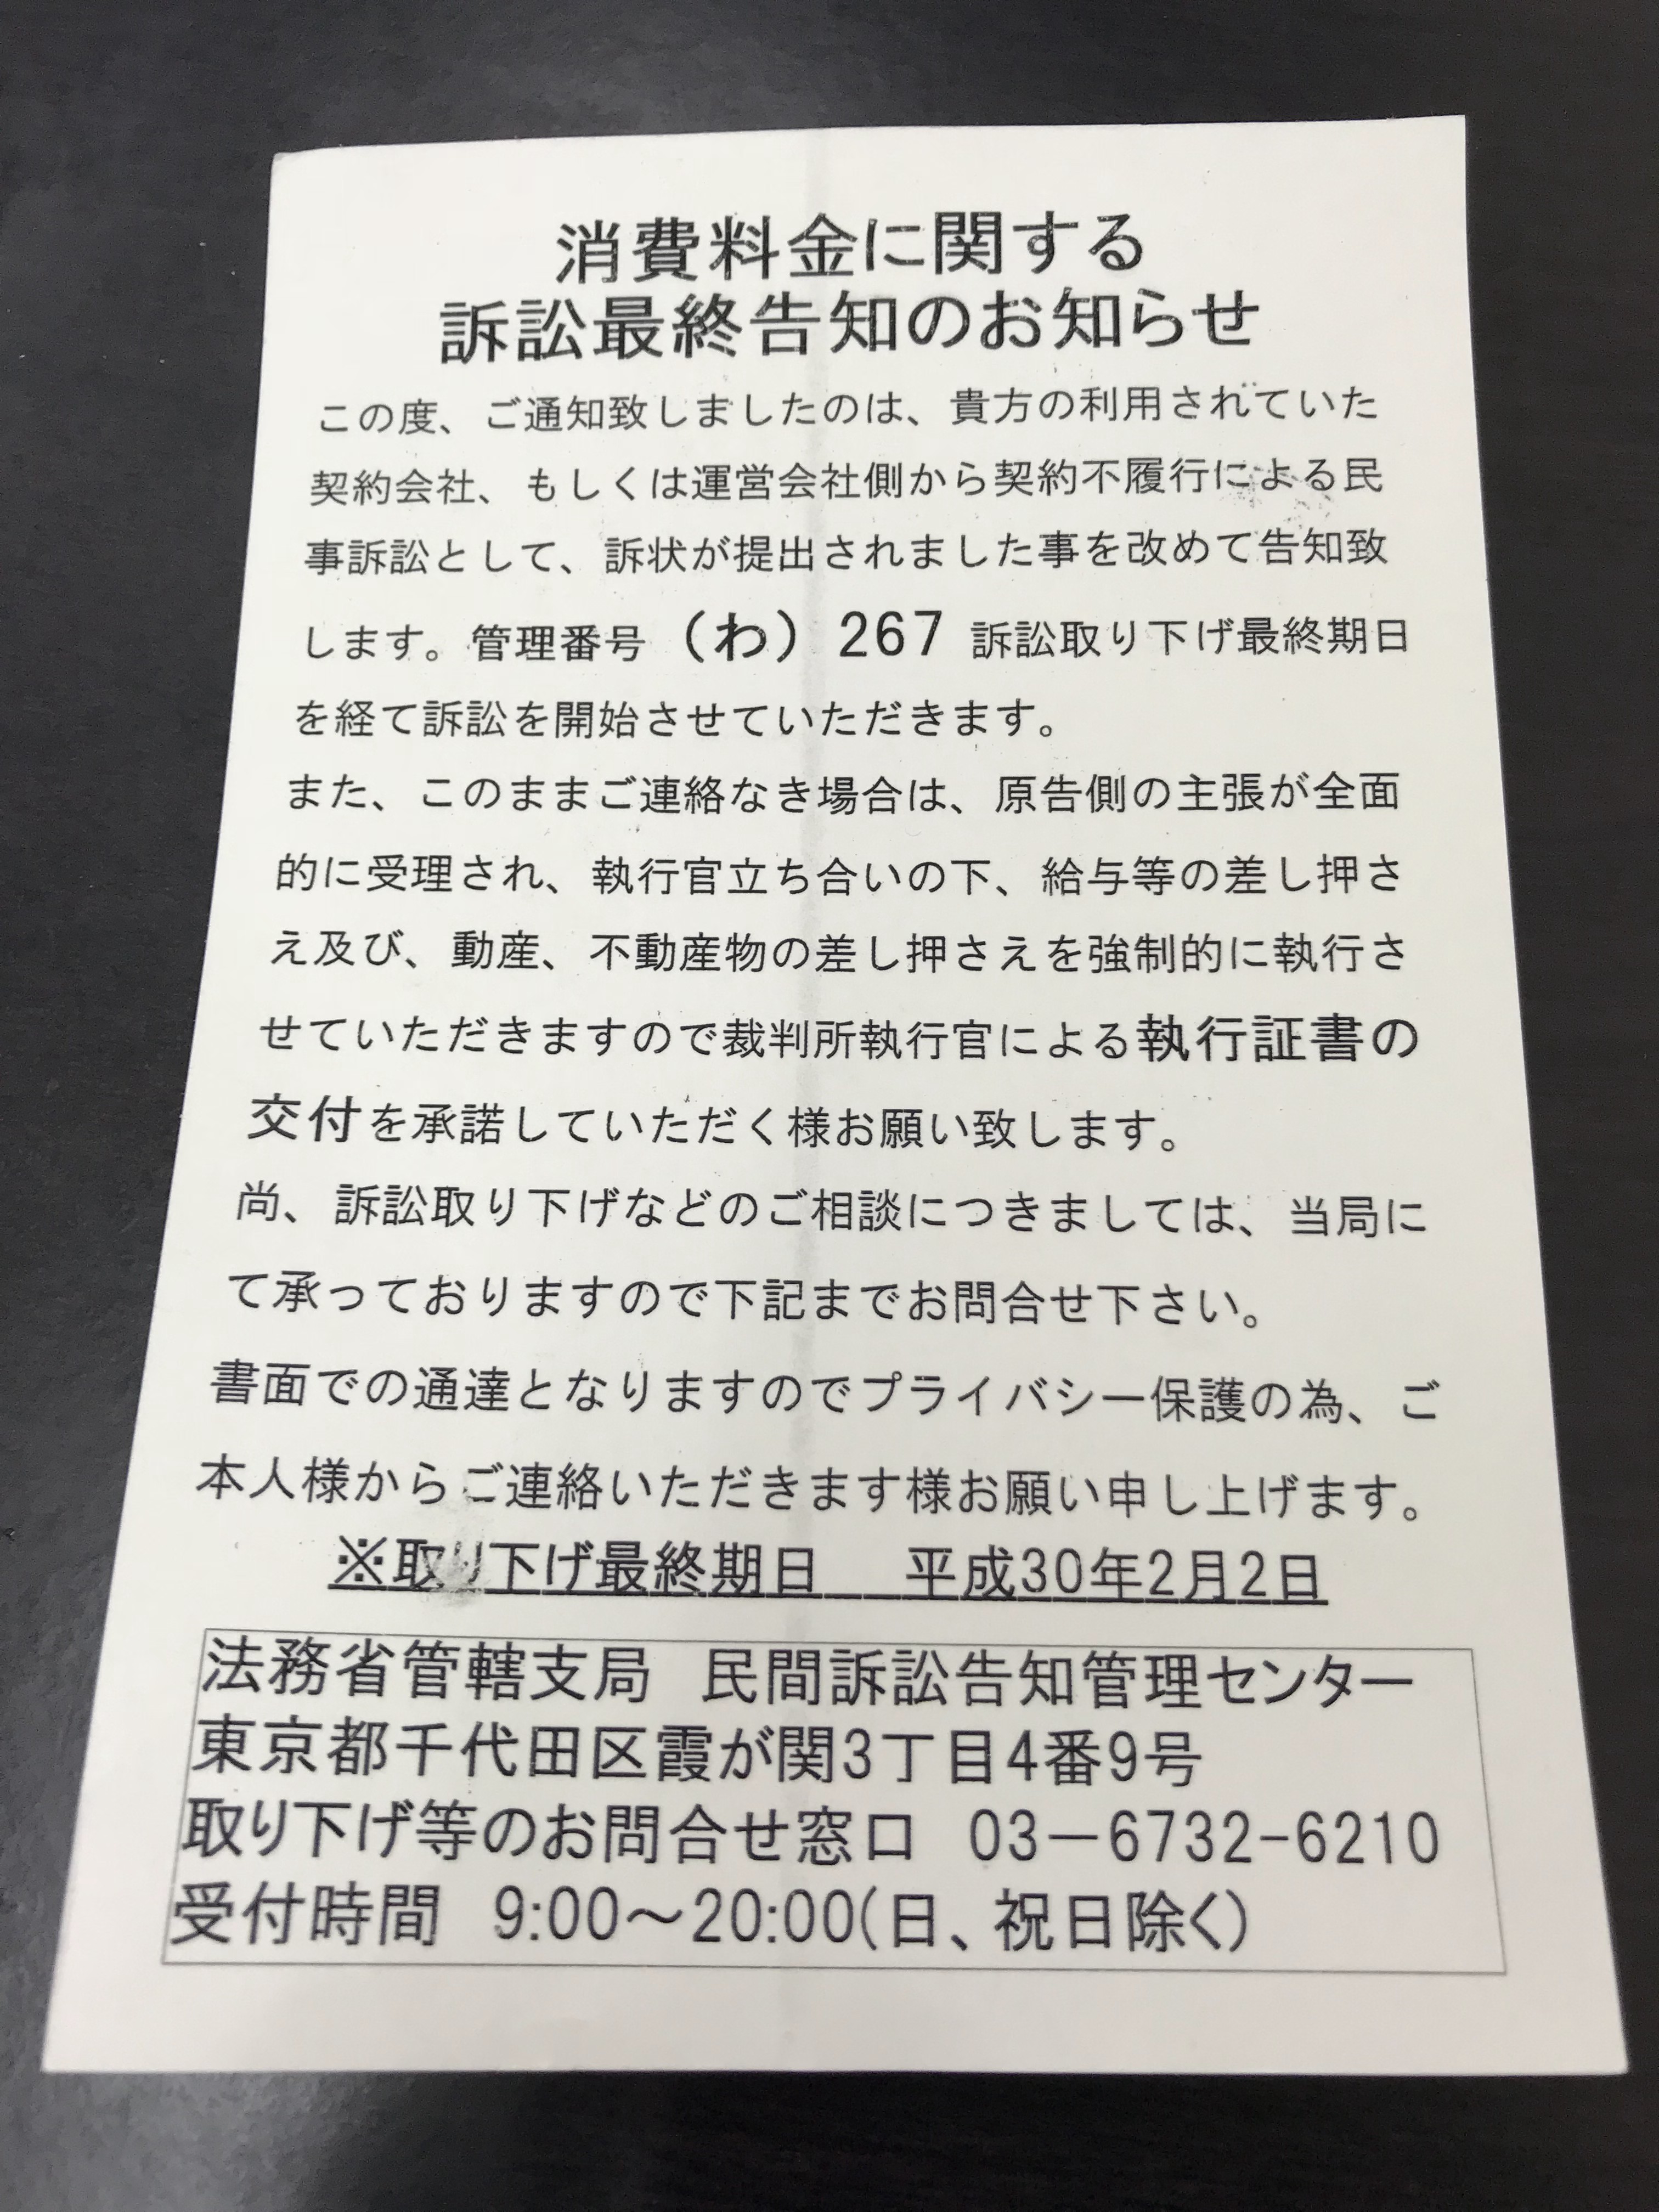 消費料金に関する
訴訟最終告知のお知らせ
この度、ご通知致しましたのは、貴方の利用されていた
契約会社、もしくは運営会社側から契約不履行による民
事訴訟として、訴状が提出されました事を改めて告知致
します。管理番号（わ）267 訴訟取り下げ最終期日
を経て訴訟を開始させていただきます。
また、このままご連絡なき場合は、原告側の主張が全面
的に受理され、執行官立ち合いの下、給与等の差し押さ
え及び、動産、不動産物の差し押さえを強制的に執行さ
せていただきますので裁判所執行官による執行証書の
交付を承諾していただく様お願い致します。
尚、訴訟取り下げなどのご相談につきましては、当局に
て承っておりますので下記までお問合せ下さい。
書面での通達となりますのでプライバシー保護の為、ご
本人様からご連絡いただきます様お願い申し上げます。
※取り下げ最終期日　平成30年2月2日
法務省管轄支局　民間訴訟告知管理センター
東京都千代田区霞が関3丁目4番9号
取り下げ等のお問合せ窓口　03－6732-6210
受付時間　9:00～20:00(日、祝日除く)